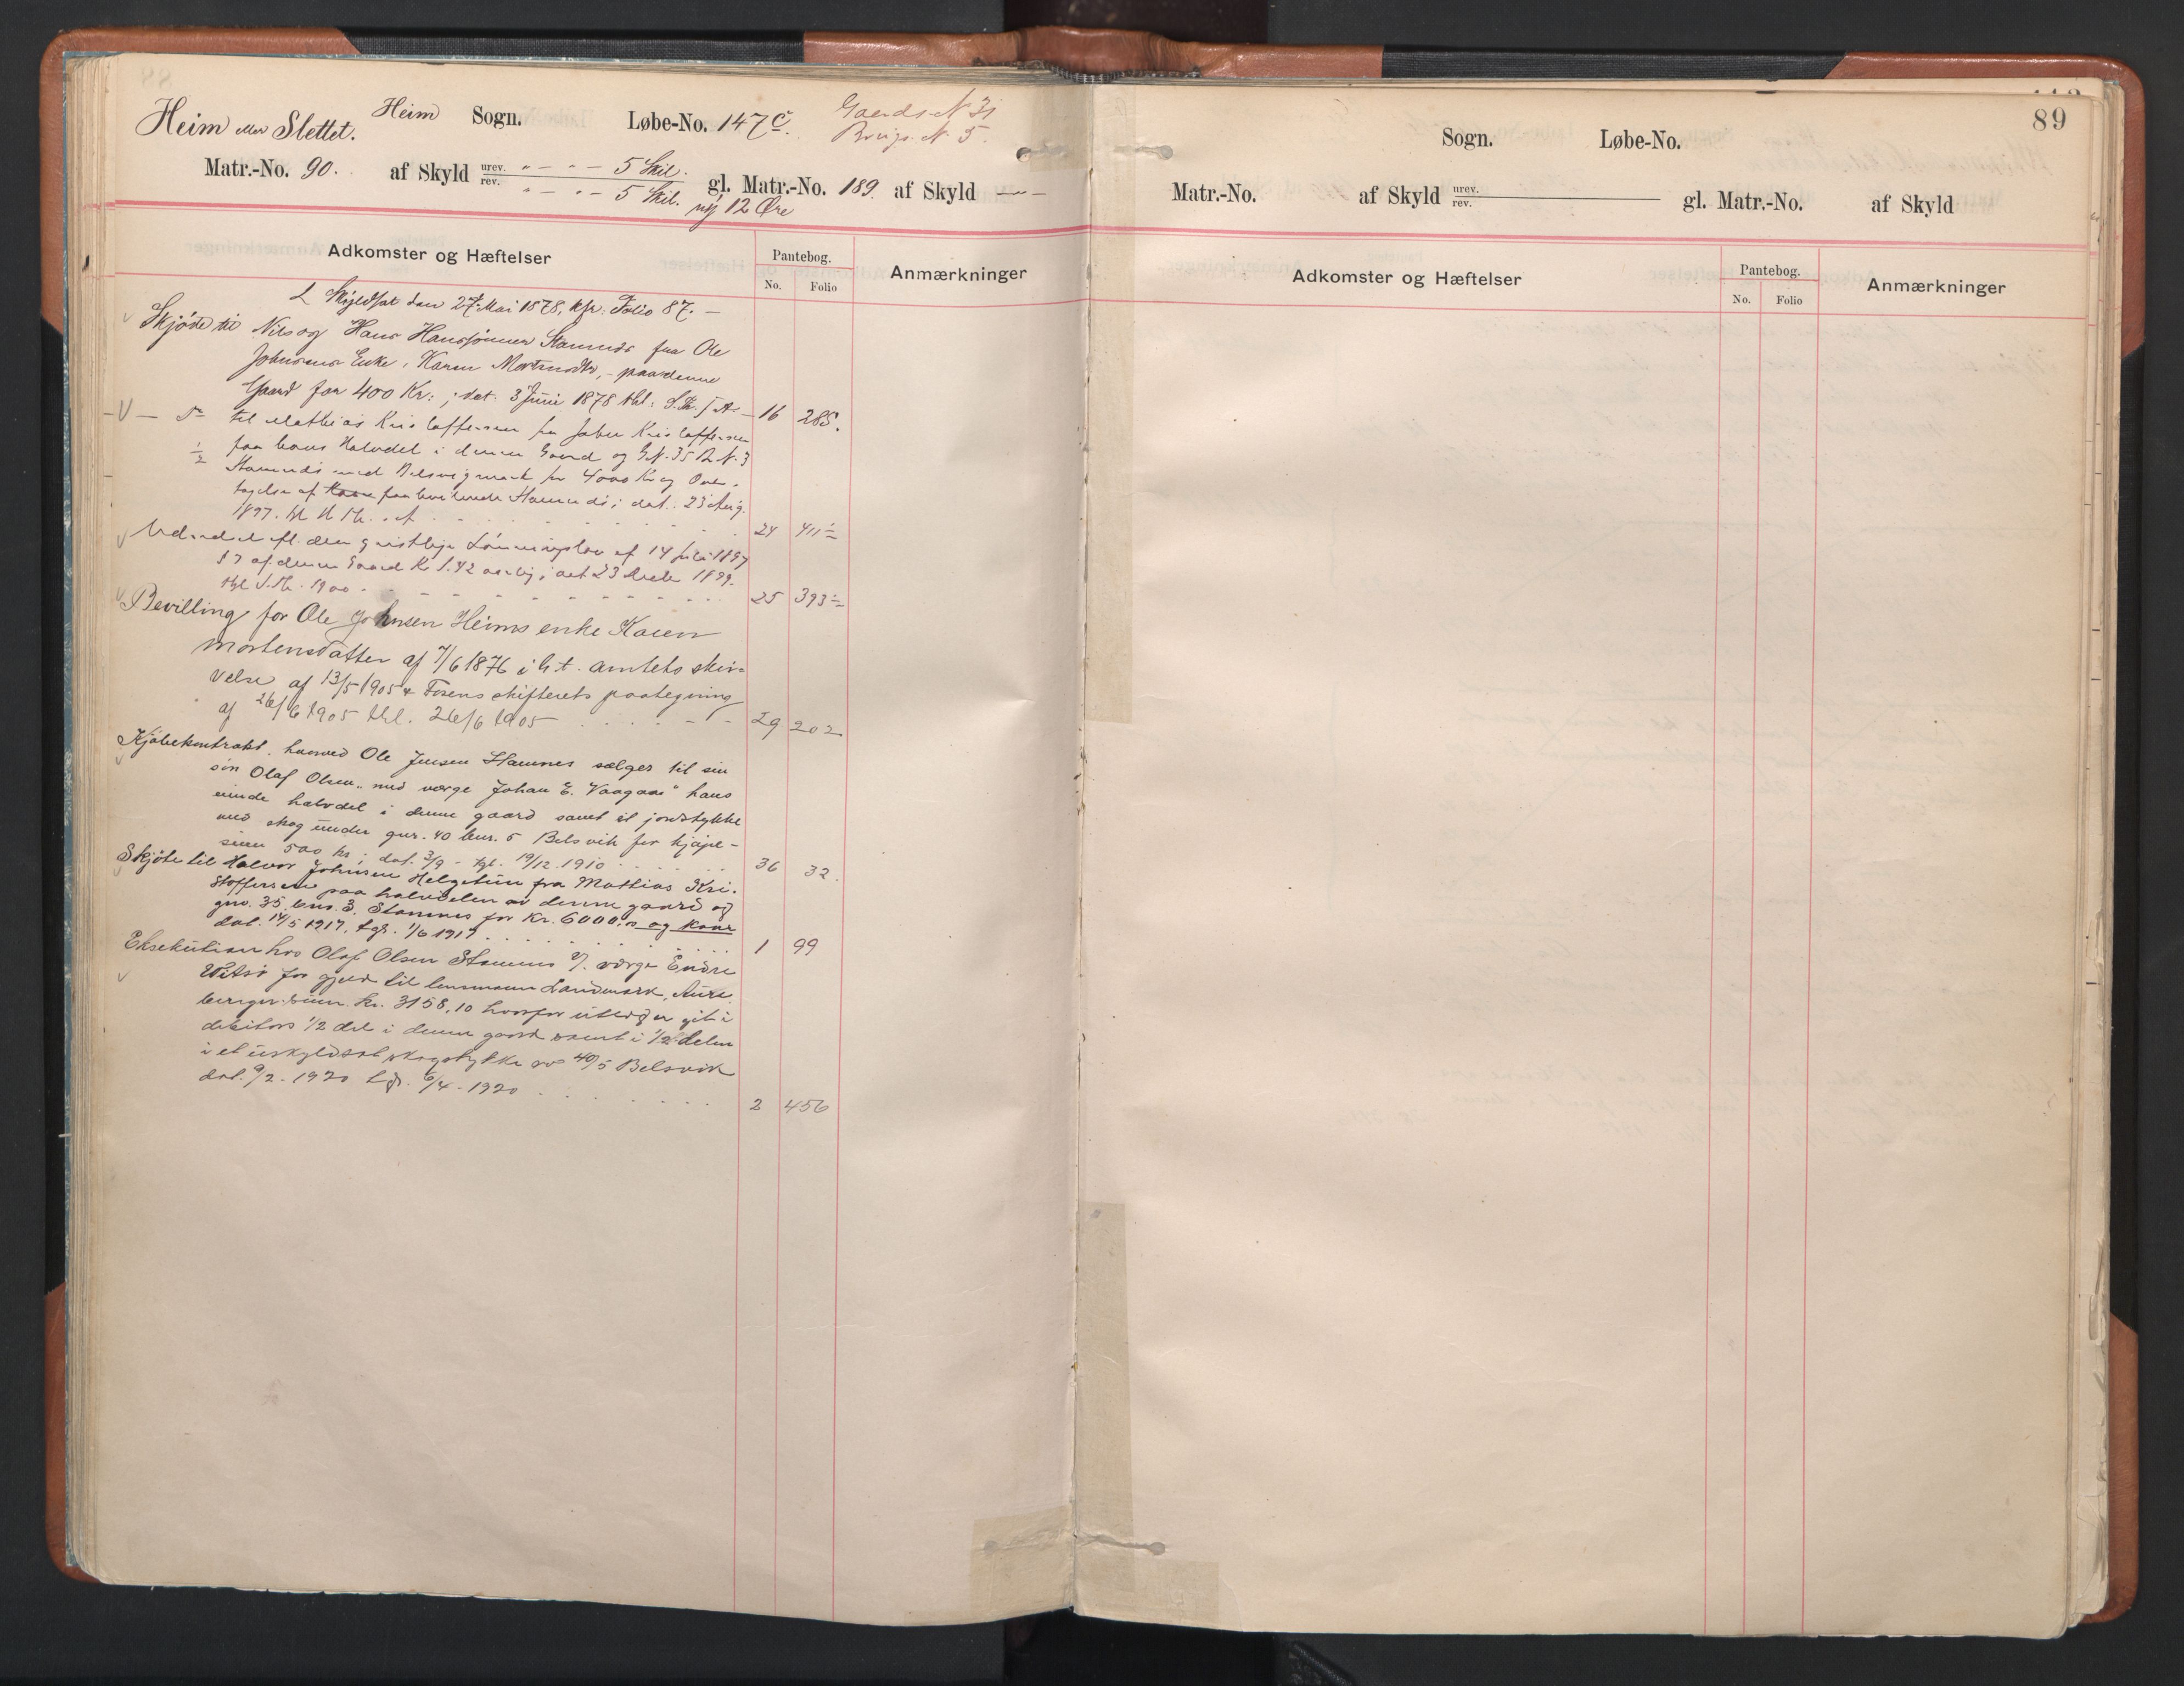 Heim eller Slettet. Heim Sogn. Løbe-No. 147c. Gaards N 31
Brugs. N. 5.
Matr.-No. 90. af Skyld urev. " — " — 5 Skil. gl. Matr.-No. 189. af Skyld — " —
rev. " — " — 5 Skil. 12 Øre
Adkomster og Hæftelser Pantebog. Anmærkninger
No. Folio
Skyldsat den 27 Mai 1878, kfr. Folio 87. —
Skjøde til Nils og Hans Hanssønner Stamnes fra Ole
Johnsens Enke, Karen Mortensdtr, - paa denne
Gaard for 400 Kr: ; dat. 3 Juni 1878 16 285.
til Mathias Kristoffersen fra John Kristoffersen
paa hans Halvdel i denne Gaard og G.N. 35 B.N. 3
Stamnes med Belsvigmark for 4000 Kr og Over-
tagelse af Kaar ; dat. 23 Aug.
1897. 24 411
Udsedel efl. den geistlige Lønningslov af 14 Juli 1897
§ 7 af denne Gaard Kr 1.42 aarlig; dat 23 1899.
1900 25 393
Bevilling for Ole Johnsen Heims enke Karen
Mortensdatter af 7/6 1876 i h.t. amtets skri-
velse af 13/5 1905 & Fosens skifterets paategning
af 26/6 1905 thl. 26/6 1905 29 202
Kjøbekontrakt, hvorved Ole Jensen Hamnes sælger til sin
søn Olaf Olsen "med værge Johan E. Vaagan" hans
eiende halvdel i denne gaard samt et jordstykke
med skog under gnr. 40 bnr. 5 Belsvik for kjøpe-
sum 500 kr; dat. 3/9 - tgl. 19/12 1910 36 32.
Skjøte til Halvor Johnsen Helgetun fra Mattias Kri-
stoffersen paa halvdelen av denne gaard og
gnr. 35, bnr. 3. Stamnes for Kr. 6000,00 og kaar
dat. 14/5 1917, tgl. 1/6 1917 1 99
Eksekution hos Olaf Olsen Stamnes v/. værge Endre
for gjeld til lensmann Landmark, Aure
kr. 3158,10 hvorfor utlegg er git i
debitors 1/2 del i denne gaard samt i 1/2 delen
i et uskyldsat skogstykke av 40/5 Belsvik
dat. 9/2 - 1920 tgl. 6/4 - 1920 2 456
89
Sogn. Løbe-No.
Matr.-No. af Skyld urev. gl. Matr.-No. af Skyld
rev.
Adkomster og Hæftelser Pantebog. Anmærkninger
No. Folio